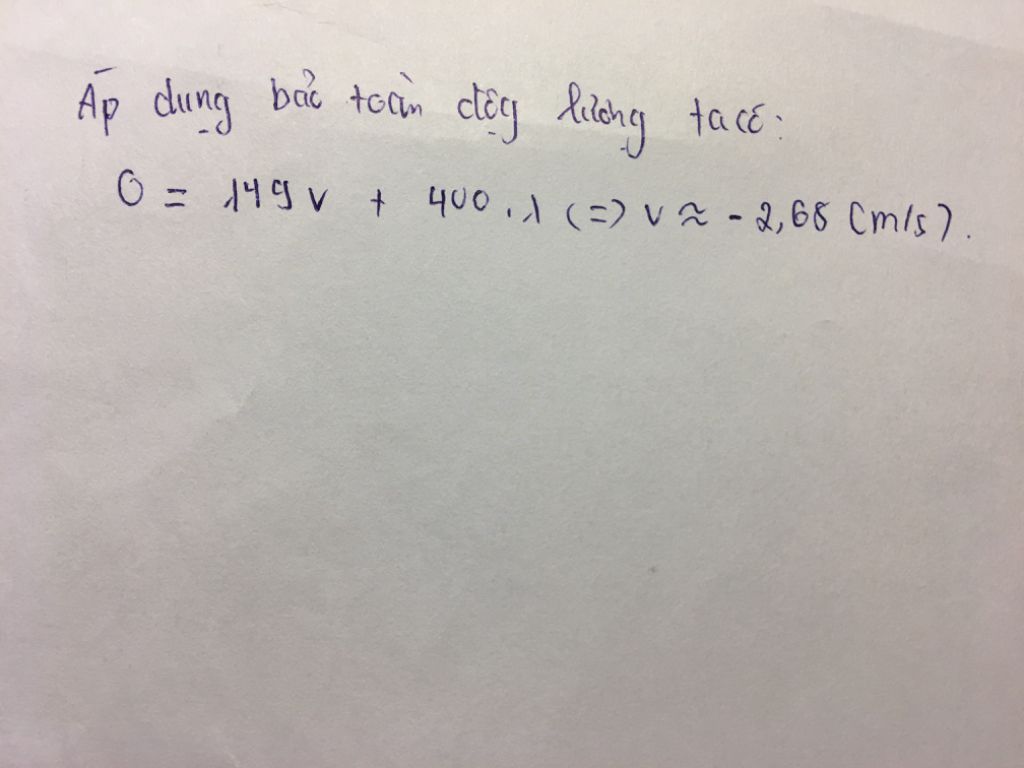 Áp dụng bảo toàn động lượng ta có:
0 = 149 v + 400 . 1 (=) v ≈ - 2,68 (m/s).